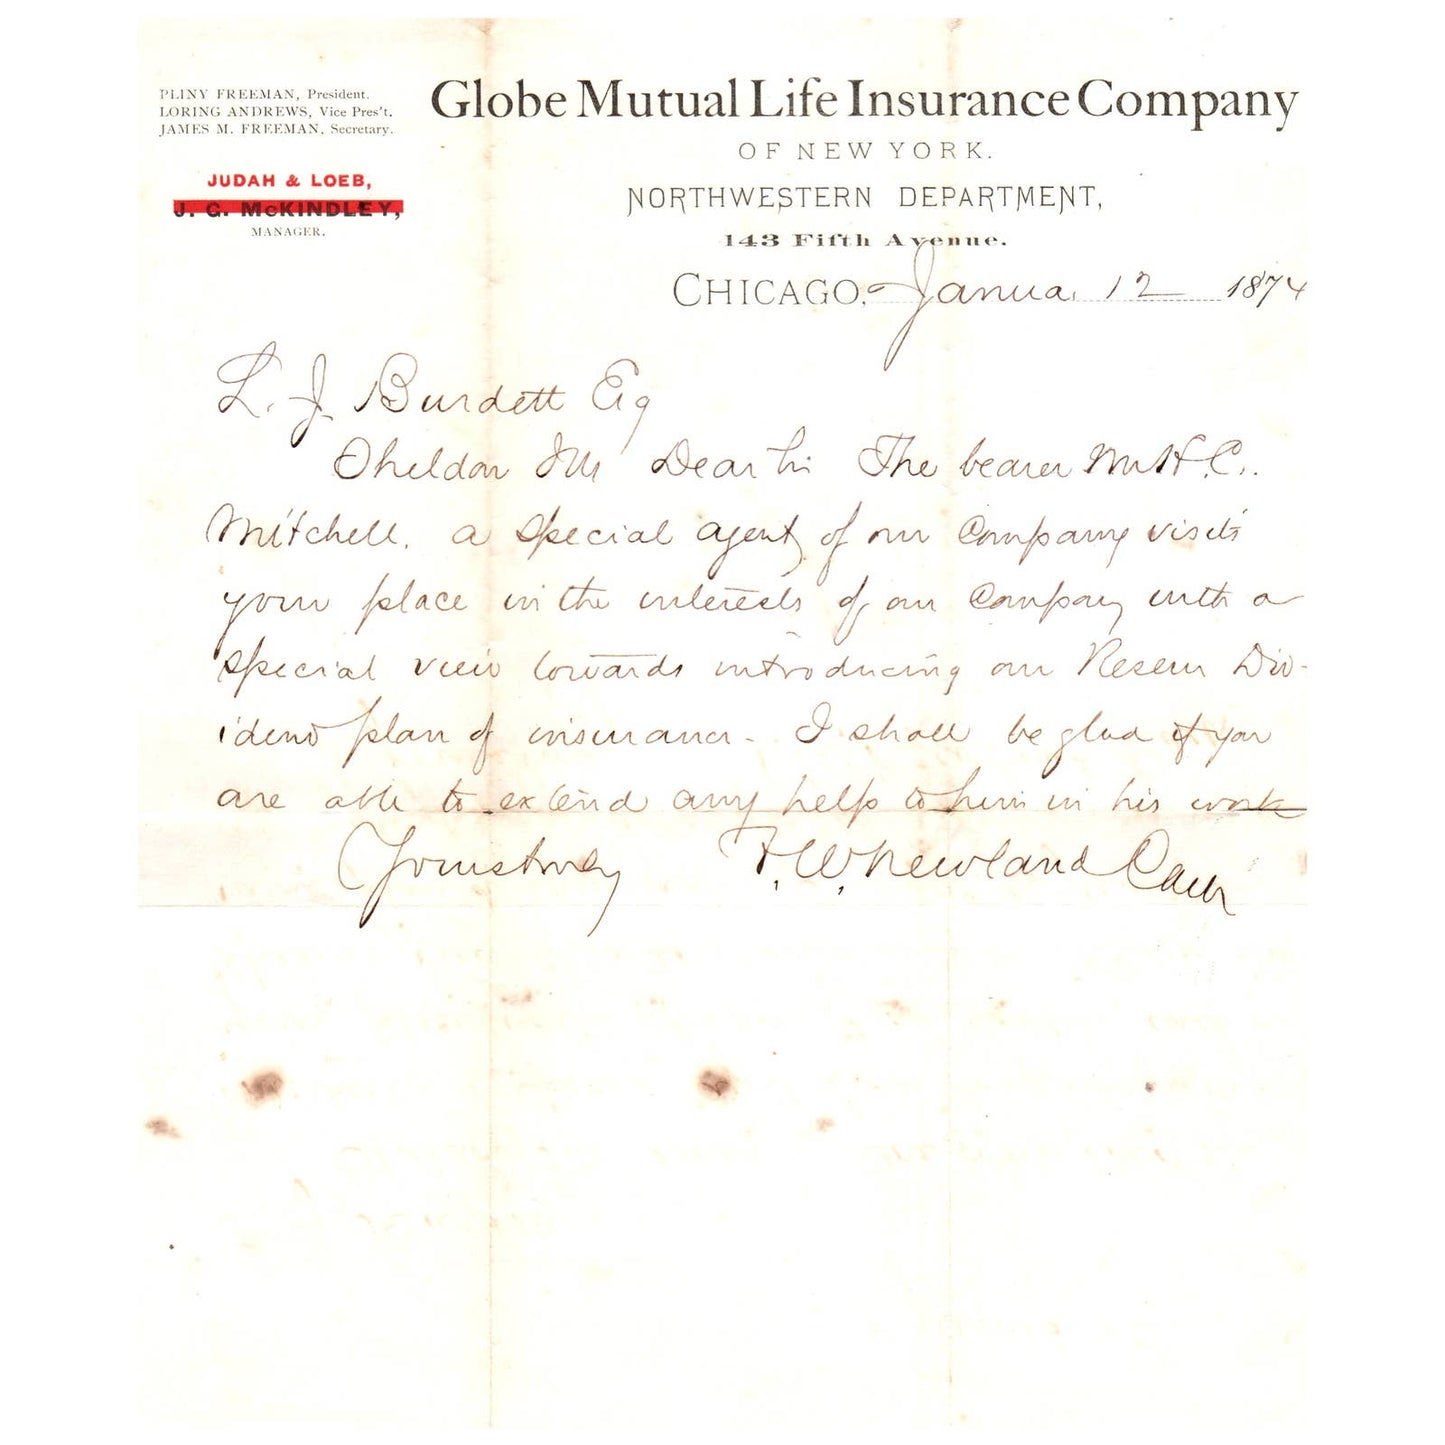 PLINY FREEMAN, President.
LORING ANDREWS, Vice Pres't.
JAMES M. FREEMAN, Secretary.
JUDAH & LOEB,
J. G. McKINDLEY,
MANAGER.
Globe Mutual Life Insurance Company
OF NEW YORK.
NORTHWESTERN DEPARTMENT,
143 Fifth Avenue.
CHICAGO, Janua. 12 1874
L. J. Burdett Esq
Sheldon Ills Dear Sir The bearer Mr H. C.
Mitchell, a special agent of our Company visits
your place in the interests of our Company with a
special view towards introducing our Reserve Div-
idend plan of insurance. I shall be glad if you
are able to extend any help to him in his work
Yours truly F. W. Newland